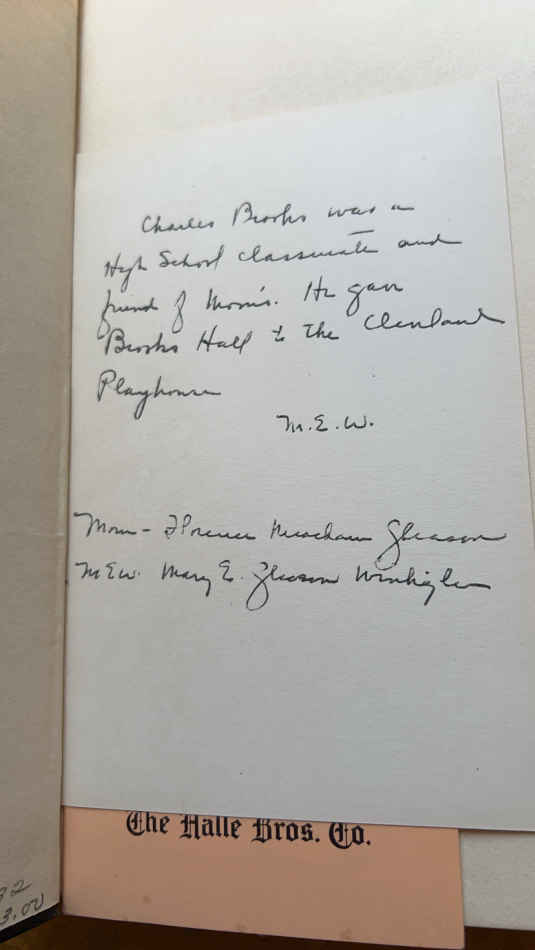 Charles Brooks was a
High School classmate and
friend of Mom's. He gave
Brooks Hall to the Cleveland
Playhouse
M.E.W.
Mom - Florence Meacham Gleason
MEW. Mary E. Gleason
The Halle Bros. Co.
32
3.00